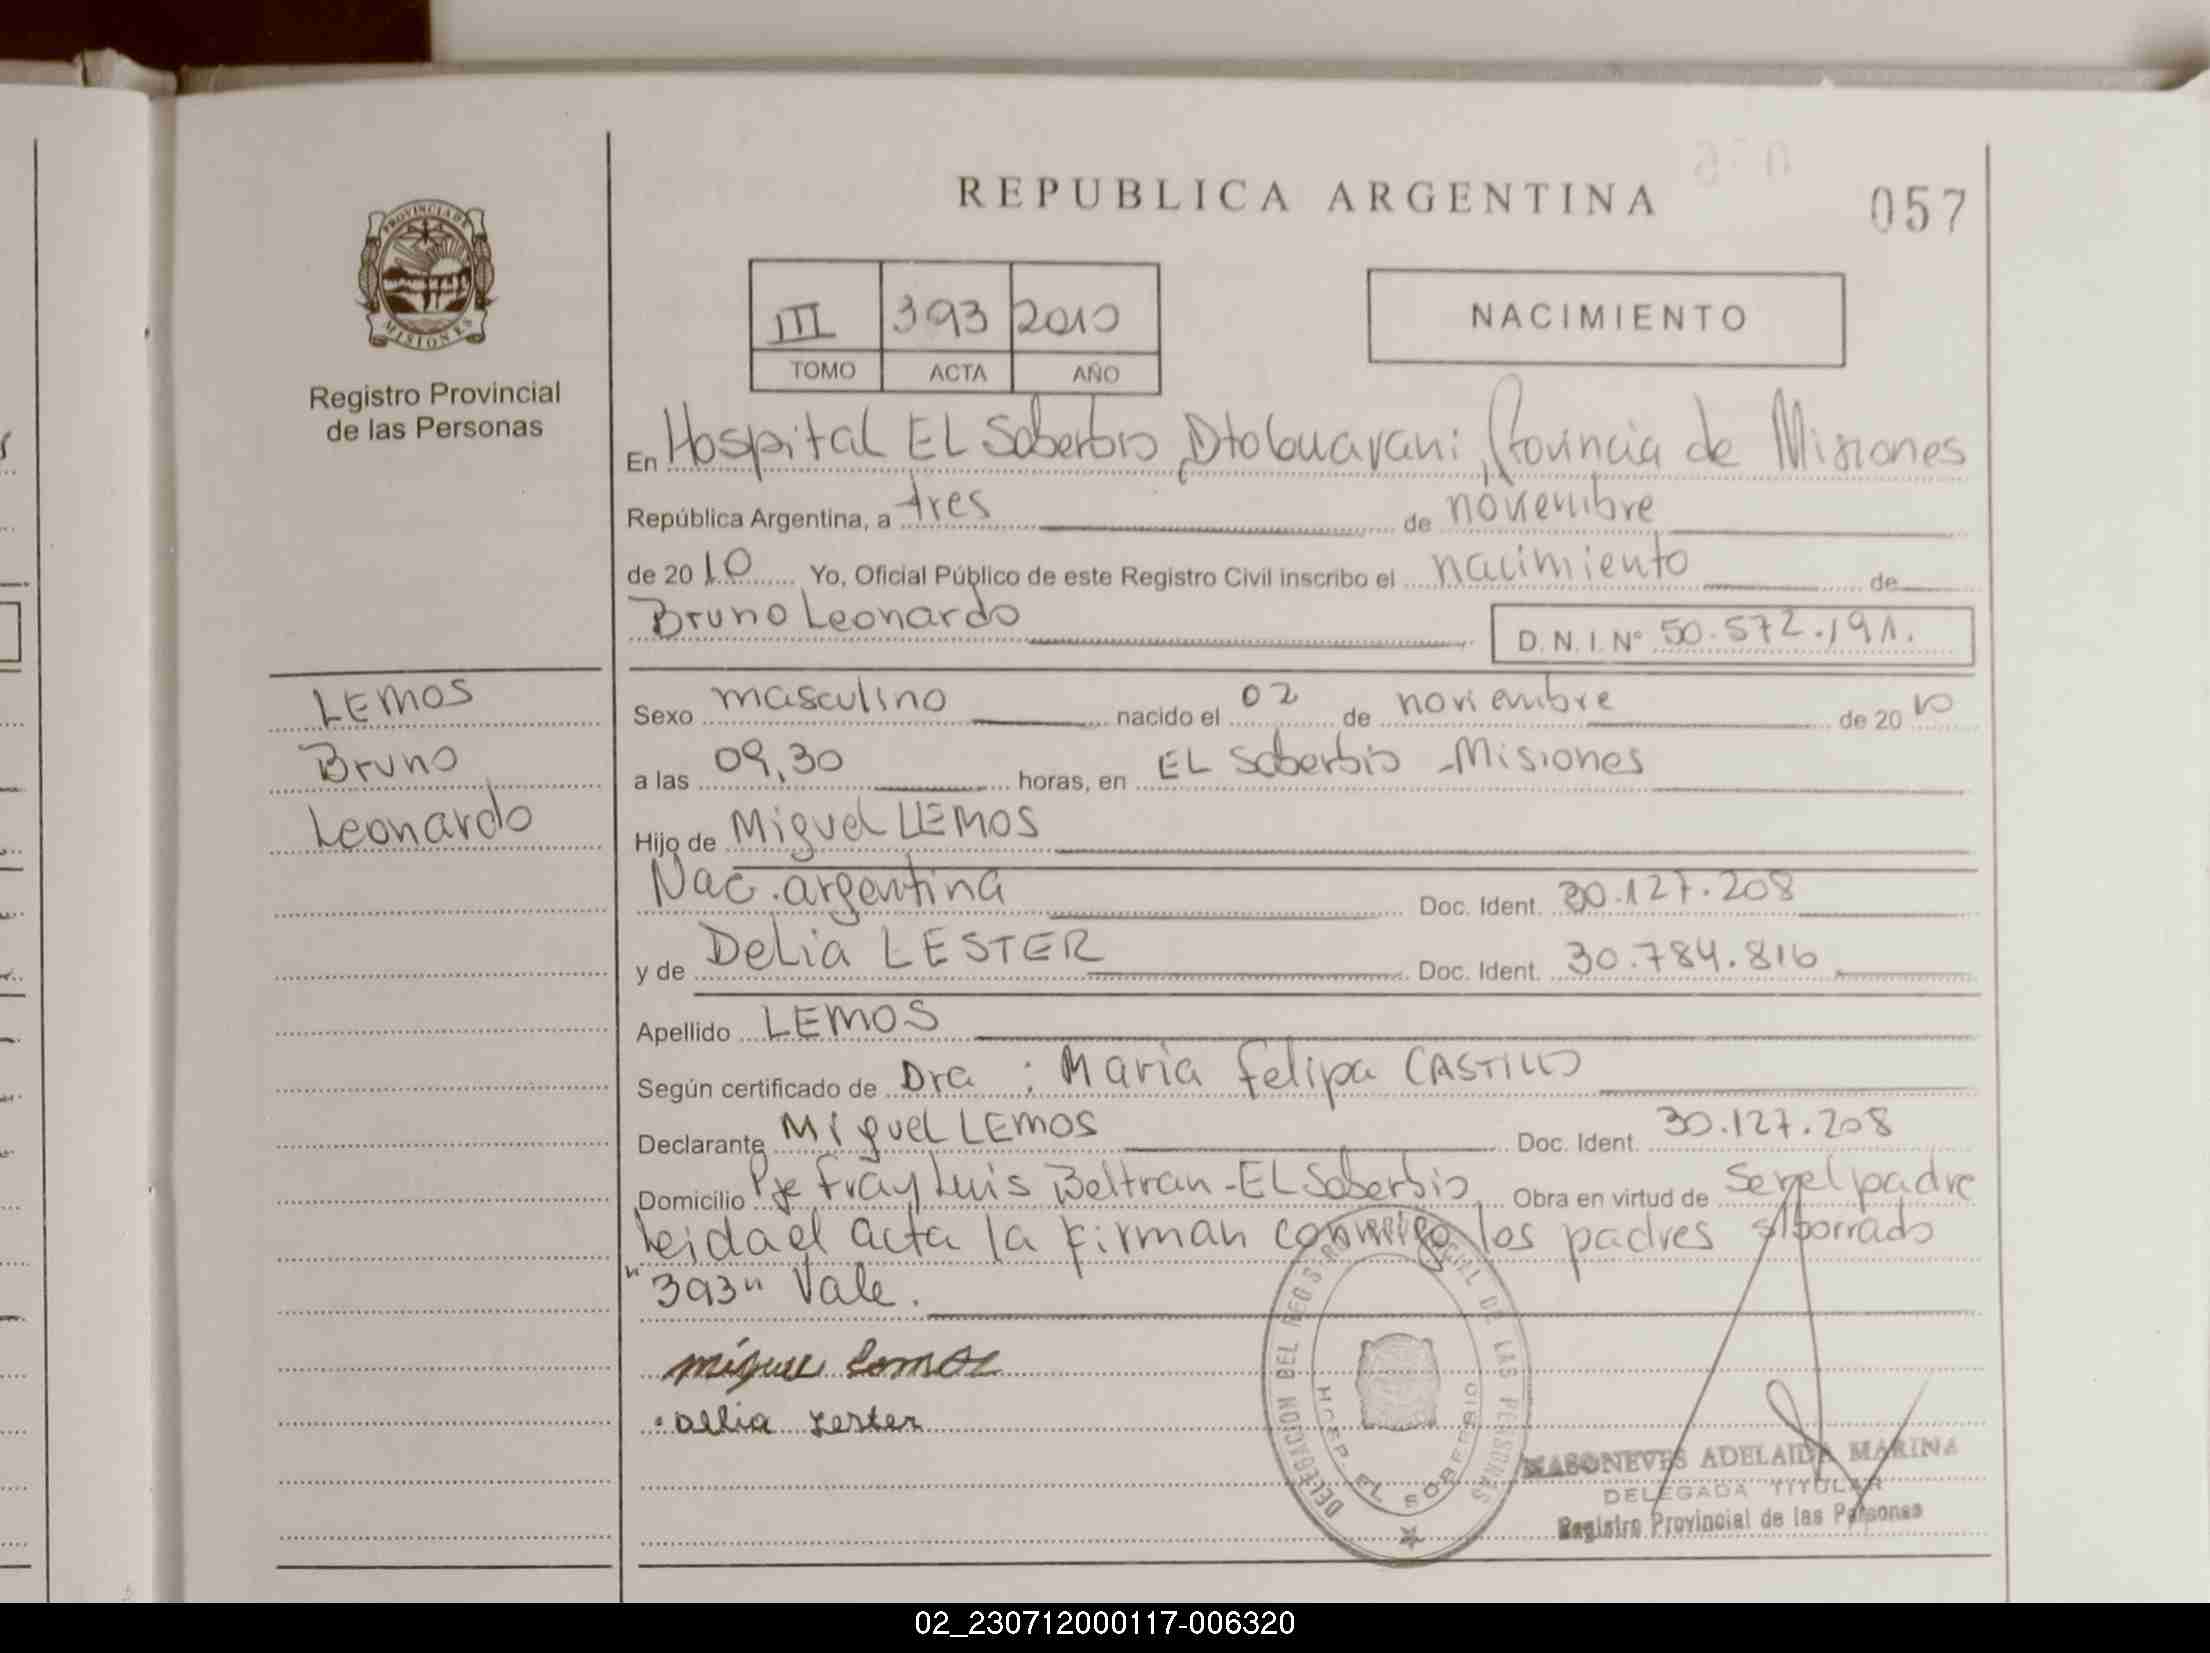 REPUBLICA ARGENTINA
057
PROVINCIA DE
MISIONES
Registro Provincial
de las Personas
III 393 2010
TOMO ACTA AÑO
NACIMIENTO
En Hospital EL Soberbio, Dto Guarani, Provincia de Misiones
República Argentina, a tres de noviembre
de 2010 Yo, Oficial Público de este Registro Civil inscribo el nacimiento de
Bruno Leonardo D.N.I. Nº 50.572.191.
LEMOS
Bruno
Leonardo
Sexo masculino nacido el 02 de noviembre de 2010
a las 09,30 horas, en EL Soberbio - Misiones
Hijo de Miguel LEMOS
Nac. argentina Doc. Ident. 30.127.208
y de Delia LESTER Doc. Ident. 30.784.816
Apellido LEMOS
Según certificado de Dra : Maria Felipa CASTILLO
Declarante Miguel LEMOS Doc. Ident. 30.127.208
Domicilio Pje Fray Luis Beltran - EL Soberbio Obra en virtud de Ser el padre
Leida el acta la firman conmigo los padres s/borrado
"393" Vale.
miguel Lemos
Delia Lester
DELEGACION DEL REGISTRO PROVINCIAL DE LAS PERSONAS
HOSP. EL SOBERBIO
MASONEVES ADELAIDA MARINA
DELEGADA TITULAR
Registro Provincial de las Personas
02_230712000117-006320